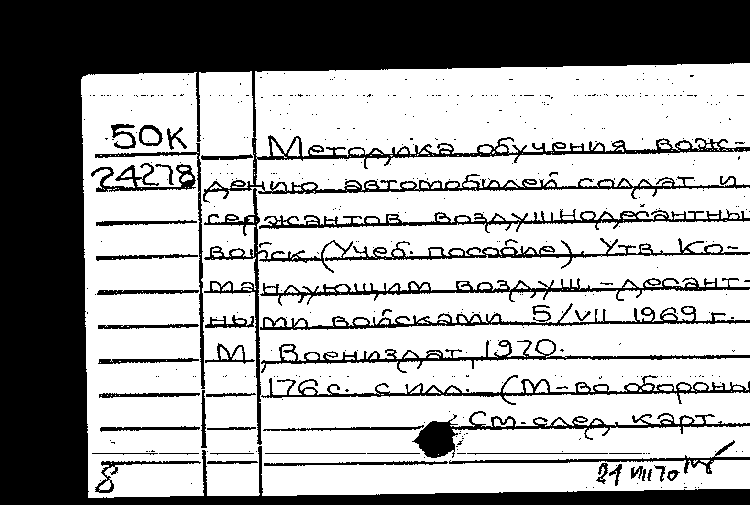 50К Методика обучения вож-
24278 дению автомобилей солдат и
сержантов воздушнодесантны
войск. (Учеб. пособие). Утв. Ко-
мандующим воздуш.-десант-
ными войсками 5/VII 1969 г.
М., Воениздат, 1970.
176 с. с илл. (М-во обороны
См. след. карт.
8 21 VIII 70